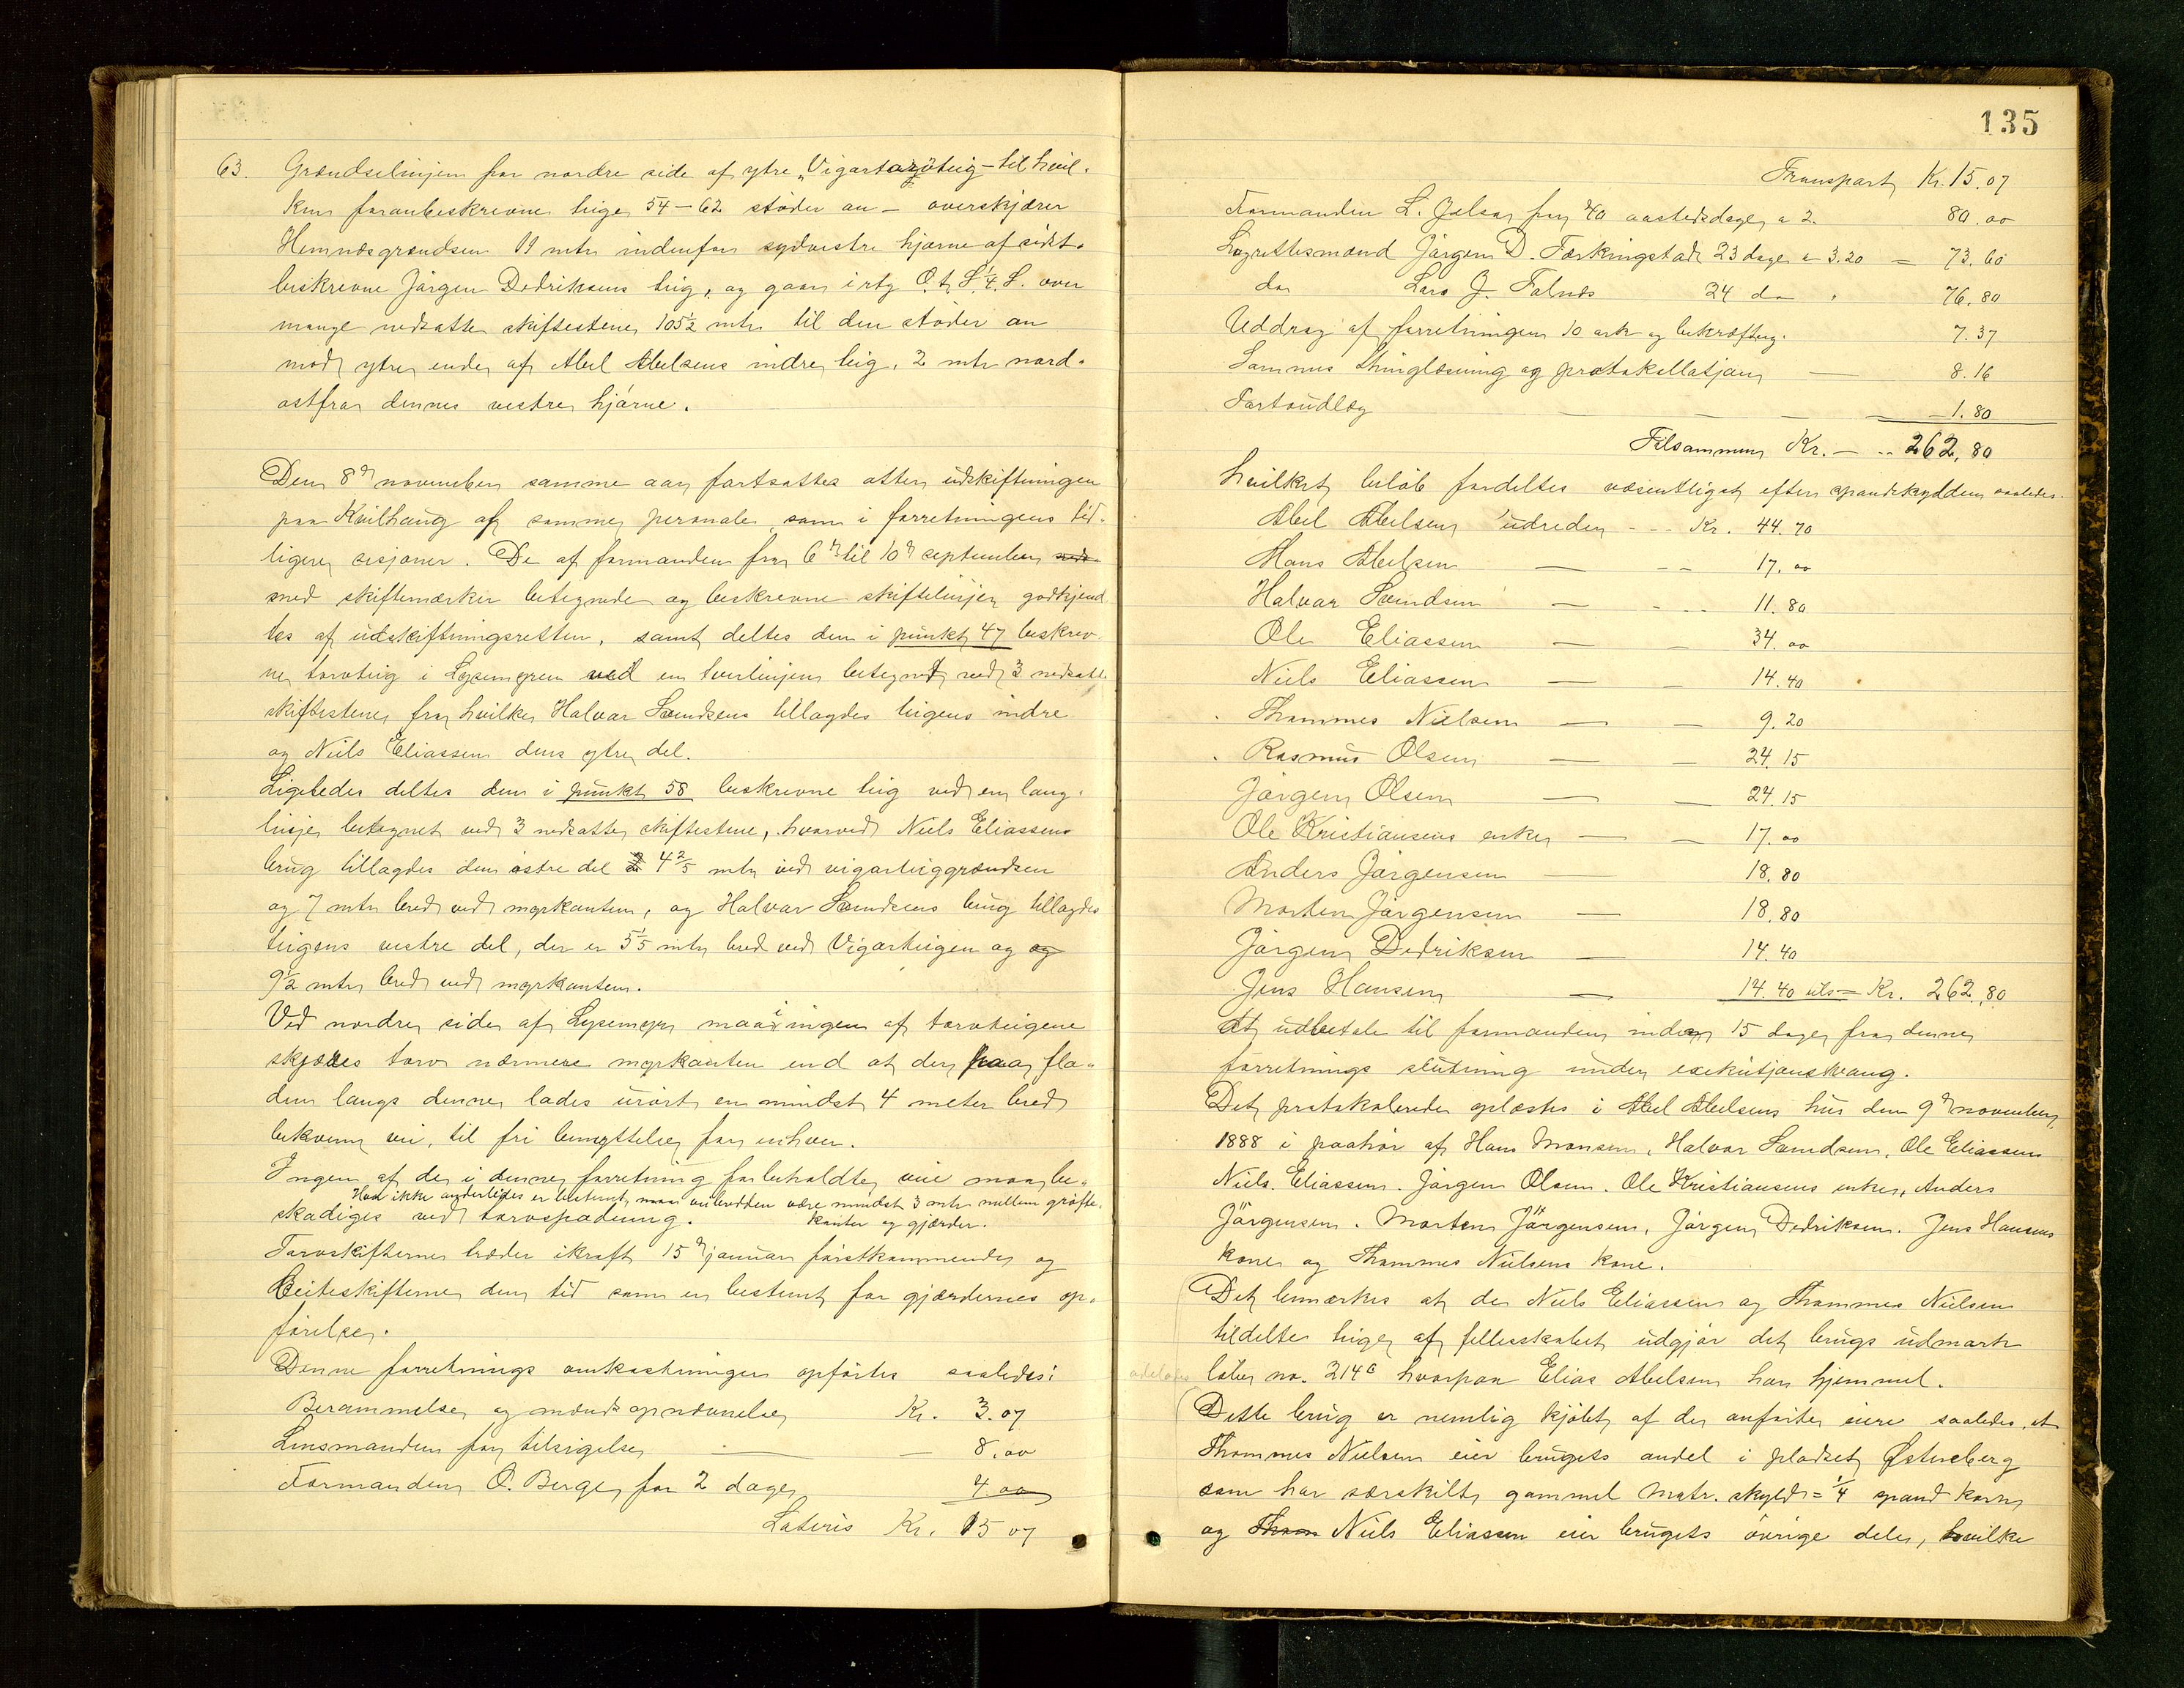 63. Grændselinjen for nordre side af ytre "Vigartorvteig - til hvil-
ken foranbeskrevne teige 54-62 støder an - overskjærer
Hemnæsgrændsen 19 mtr indenfor sydvestre hjørne af sidst-
beskrevne Jørgen Dedriksens teig, og gaar i rtg O. t. S. ¼ S. over
mange nedsatte skiftestene, 105½ mtr til den støder an
mod ytre ende af Abel Abelsens indre teig, 2 mtr nord-
ostfra dennes vestre hjørne.
Den 8de november samme aar fortsattes atter udskiftningen
paa Kvilhaug af samme personale som i forretningens tid-
ligere sesjoner. De af formanden fra 6te til 10de september
med skiftemærker betegnede og beskrevne skiftelinjer godkjend-
tes af udskiftningsretten, samt deltes den i punkt 47 beskrev-
ne torvteig i Lysemyren ved en tverlinjen betegnet ved 3 nedsatte
skiftestene, fra hvilke Halvar Svendsens tillagdes teigens indre
og Niels Eliassen dens ytre del.
Ligeledes deltes den i punkt 58 beskrevne teig ved en lang-
linje, betegnet ved 3 nedsatte skiftestene, hvorved Niels Eliassens
brug tillagdes den østre del 4 2/5 mtr ved vigarteiggrændsen
og 7 mtr bred ved myrkanten, og Halvar Svendsens brug tillagdes
teigens vestre del, der er 5 1/5 mtr bred ved Vigarteigen og og
9½ mtr bred ved myrkanten.
Ved nordre side af Lysemyr maa ingen af torvteigene
skjæres torv nærmere myrkanten end at der paa fla-
den langs denne lades urørt en mindst 4 meter bred
bekvem vei, til fri benyttelse for enhver.
Ingen af de i denne forretning forbeholdte veie maa be-
Hvor ikke anderledes er bestemt, maa veibredden være mindst 3 mtr mellem grøfte-
skadiges ved torvspadning. kanter og gjærder.
Torvskifterne træder ikraft 15de januar førstkommende og
Beiteskifterne den tid som er bestemt for gjærdernes op-
førelse.
Denne forretnings omkostninger opførtes saaledes:
Berammelse og mænds opnævnelse Kr. 3.07
Lensmanden for tilsigelse — 8.00
Formanden O. Berge for 2 dage 4.00
Lateris Kr. 15 07
135
Transport Kr. 15.07
Formanden L. Jelsa for 40 aastedsdage a 2. 80.00
Lagrettesmænd Jørgen D. Førkingstad 23 dage a 3.20 — 73.60
do Lars J. Falnes 24 do " 76.80
Uddrag af forretningen 10 ark og bekræftng. 7.37
Sammes thinglæsning og protokollasjon — 8.16
Portoudlæg — 1.80
Tilsammen Kr. — 262,80
hvilket beløb fordeltes væsentligst efter spandskylden saaledes.
Abel Abelsen udreder - - - Kr. 44.70
Hans Abelsen — - - 17.00
Halvar Svendsen — - - - 11.80
Ole Eliassen — - 34.00
Niels Eliassen — - 14.40
Thommes Nielsen — - 9.20
Rasmus Olsen — - 24.15
Jørgen Olsen — — 24.15
Ole Kristiansens enke — — 17.00
Anders Jørgensen — 18.80
Morten Jørgensen — 18.80
Jørgen Dedriksen — 14.40
Jens Hansen — 14.40 tils = Kr. 262,80
At udbetale til formanden inden 15 dage fra denne
forretnings slutning under exekutjonstvang.
Det protokolerede oplæstes i Abel Abelsens hus den 9de november
1888 i paahør af Hans Monsen, Halvar Svendsen, Ole Eliassen
Niels Eliassen. Jørgen Olsen. Ole Kristiansens enke, Anders
Jørgensen. Morten Jørgensen, Jørgen Dedriksen. Jens Hansens
kone og Thommes Nielsens kone.
Det bemærkes at de Niels Eliassen og Thommes Nielsen
tildelte teige af fellesskabet udgjør det brugs udmark
løber no. 214c hvorpaa Elias Abelsen har hjemmel.
Dette brug er nemlig kjøbt af de anførte eiere saaledes, at
Thommes Nielsen eier brugets andel i pladset Østeneberg
som har særskilt gammel matr. skyld = ¼ spand korn
og Thom Niels Eliassen eier brugets øvrige dele, hvilke